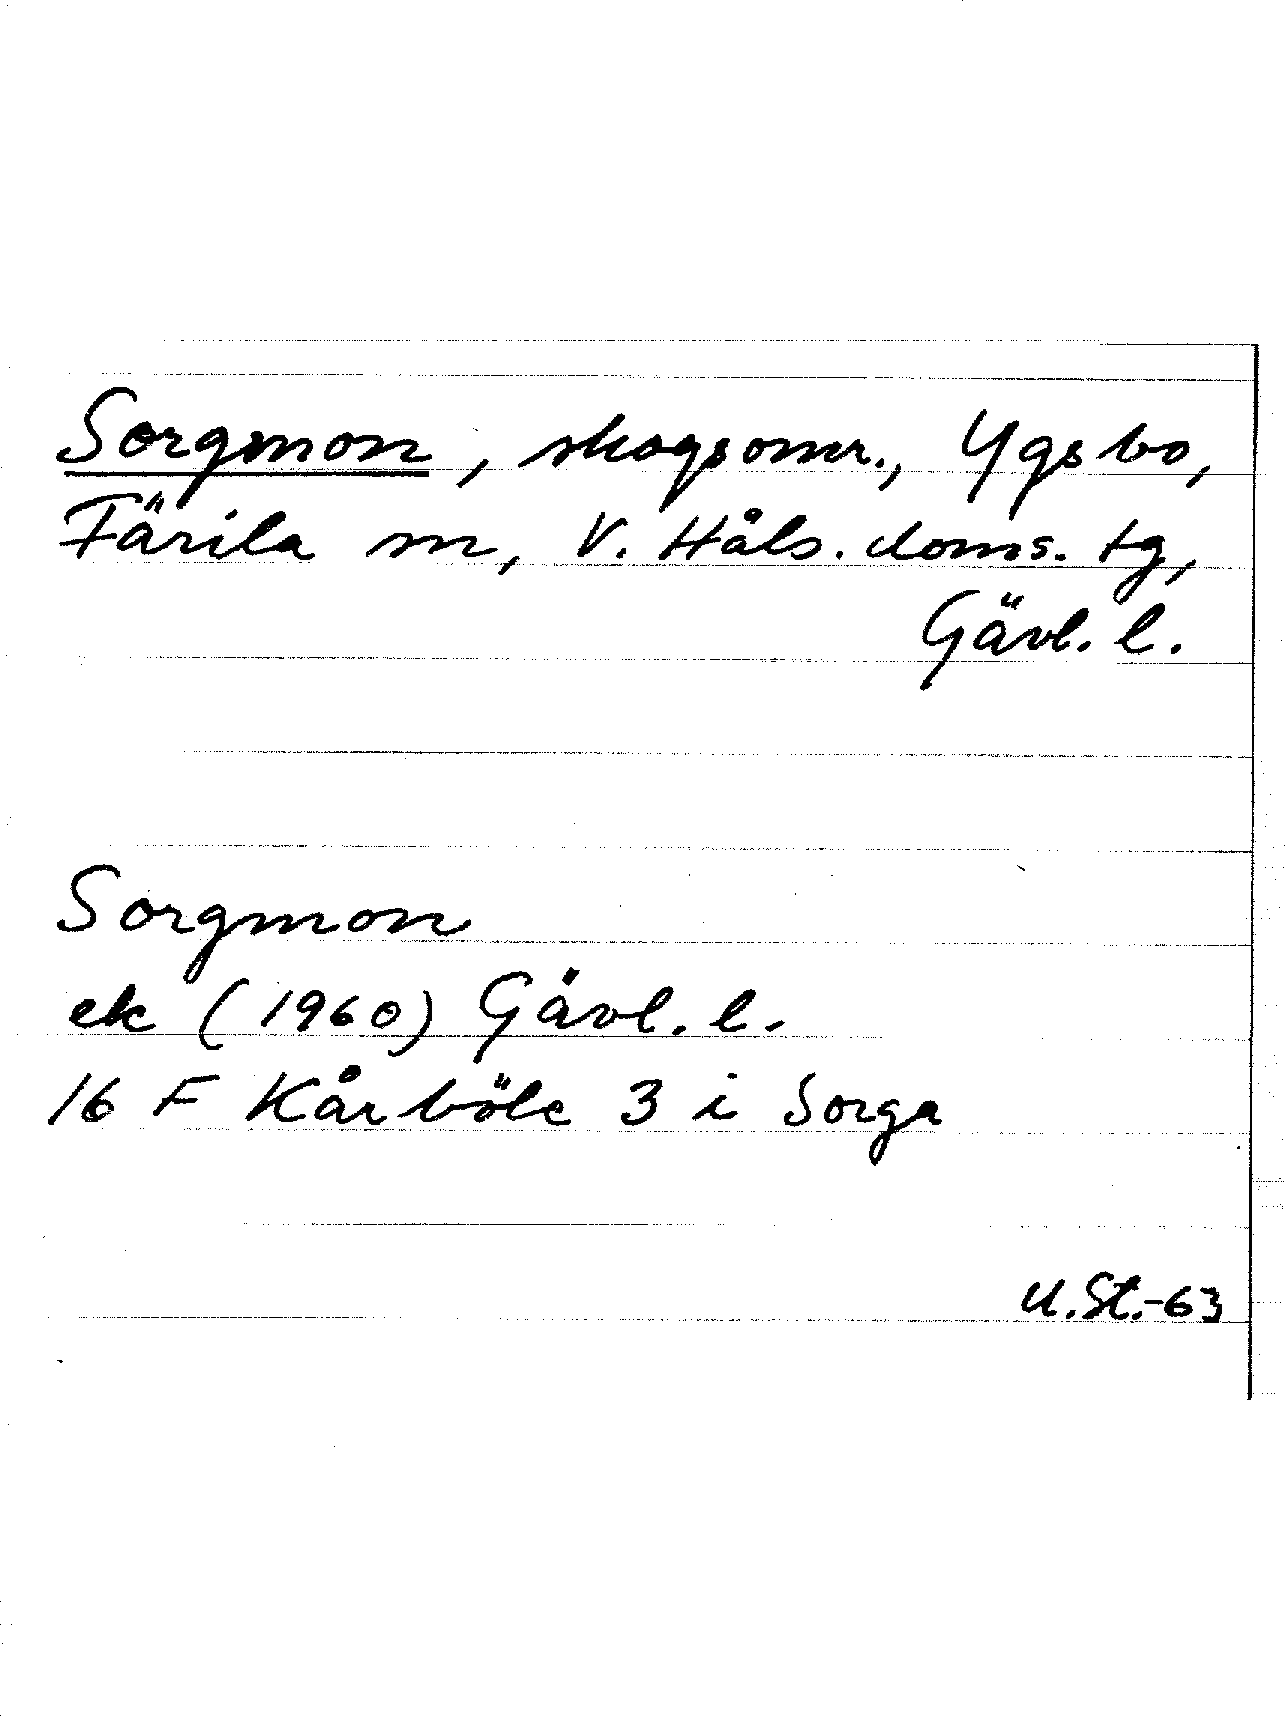 Sorgmon, skogsomr., Ygsbo,
Färila sn, V. Häls. doms. tg,
Gävl. l.
Sorgmon
ek (1960) Gävl. l.
16 F Kårböle 3 i Sorga
U.St.-63